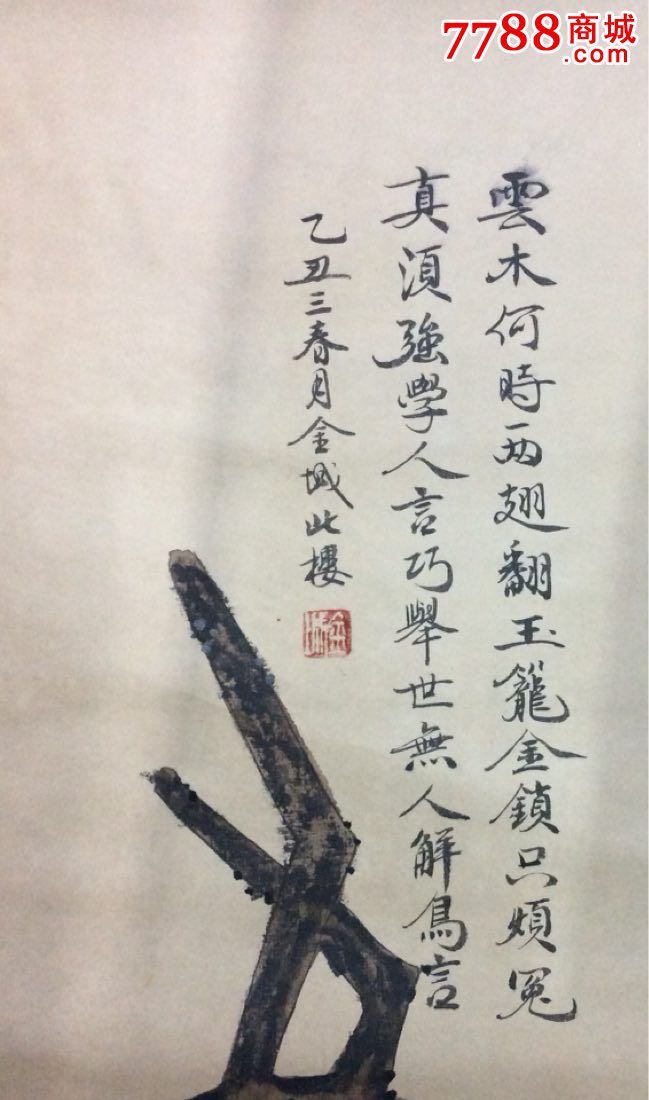 7788商城
雲木何時两翅翻玉籠金鎖只煩冤
真須強學人言巧舉世無人解鳥言
乙丑三春月金城北樓
金城